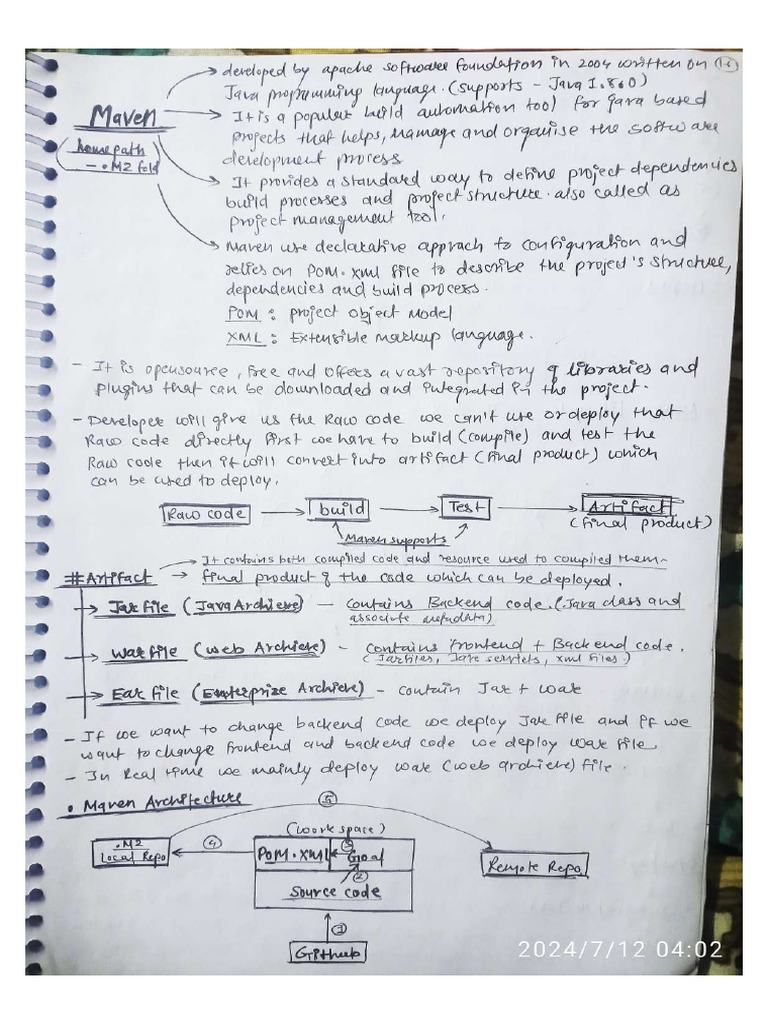 developed by apache software foundation in 2004 written on
Java programming language. (supports - Java 1.8.0)
Maven
It is a popular build automation tool for java based
projects that helps, manage and organise the software
development process
home path
- .M2 fold
It provides a standard way to define project dependencies
build processes and project structure. also called as
project management tool.
Maven use declarative approch to configuration and
relies on POM.xml file to describe the project's structure,
dependencies and build process.
POM : project object Model
XML : Extensible markup language.
- It is opensource, free and offers a vast repository of libraries and
plugins that can be downloaded and integrated in the project.
- Developer will give us the Raw code we can't use or deploy that
Raw code directly first we have to build (compile) and test the
Raw code then it will convert into artifact (final product) which
can be used to deploy.
Raw code
build
Test
Artifact
(final product)
Maven supports
It contains both compiled code and resource used to compiled them-
# Artifact
final product of the code which can be deployed.
Jar file (Java Archieve) - contains Backend code. (Java class and
associate metadata)
War file (web Archieve) - contains frontend + Backend code.
(Jar files, Java servlets, xml files.)
Ear file (Enterprize Archieve) - contain Jar + war
- If we want to change backend code we deploy Jar file and if we
want to change frontend and backend code we deploy war file
- In Real time we mainly deploy war (web archieve) file.
• Maven Architecture
⑤
(work space)
.M2
Local Repo
④
POM.XML
③
Goal
②
Source code
Remote Repo
①
Github
2024/7/12 04:02